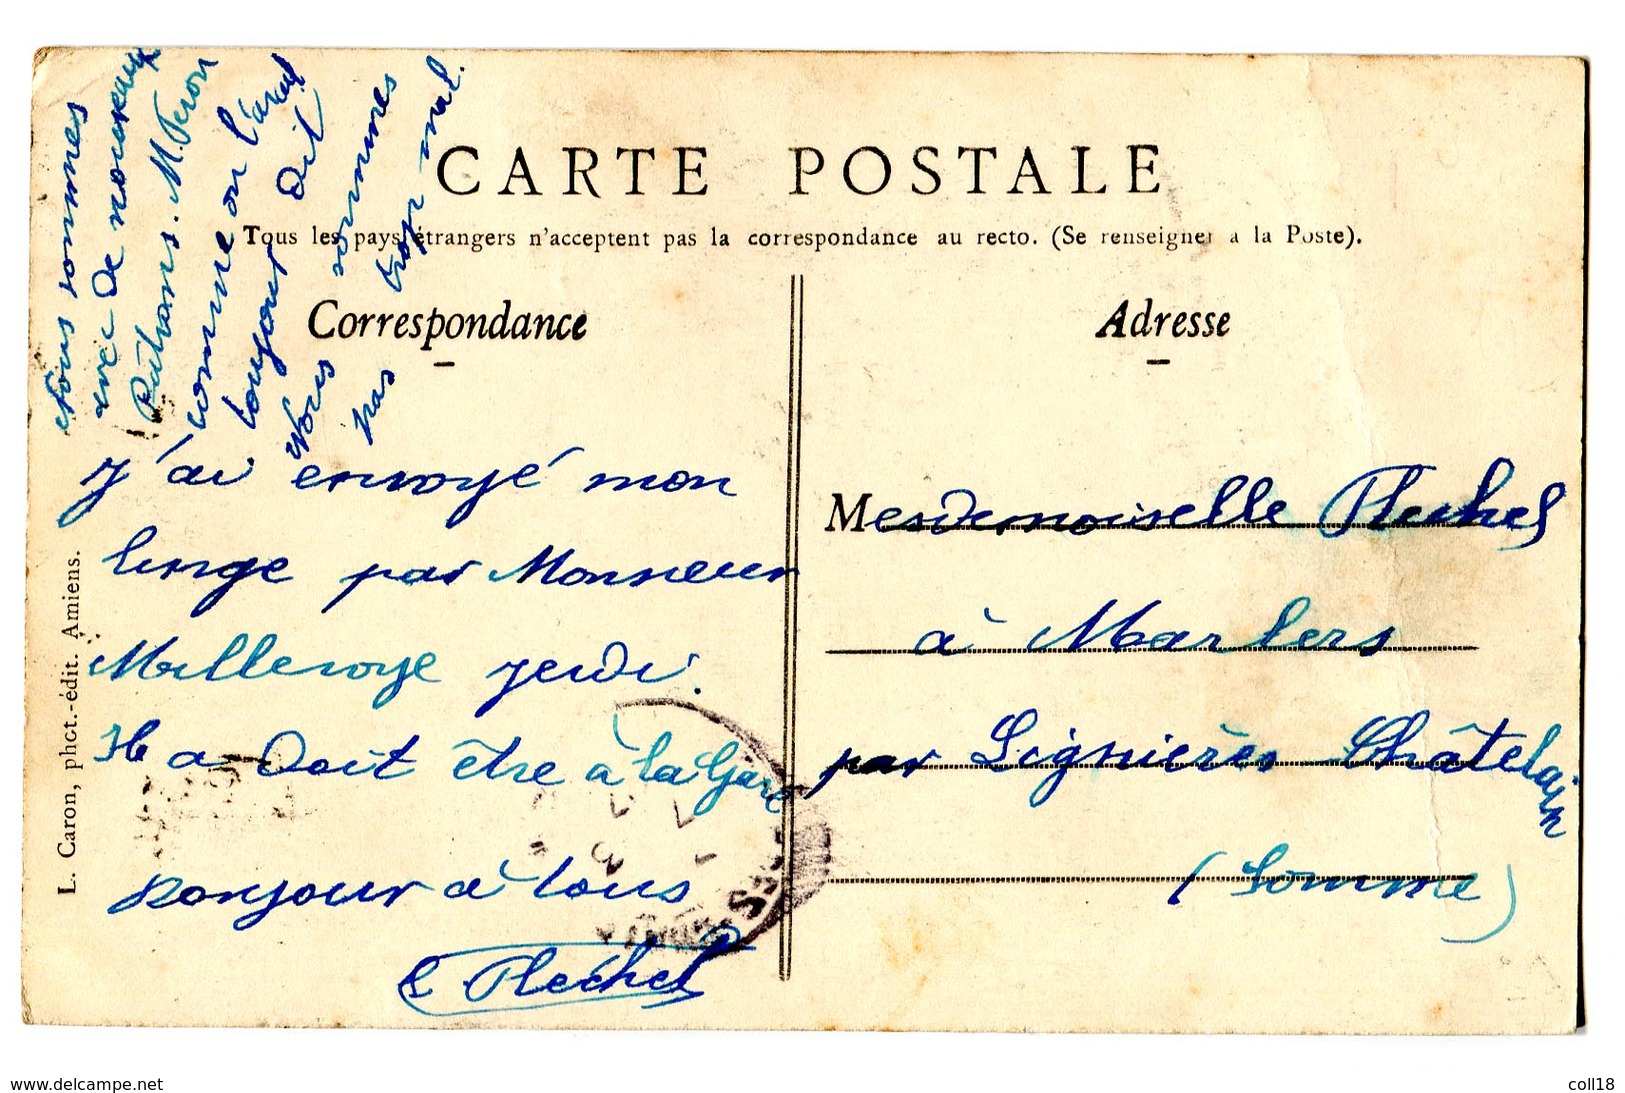 CARTE POSTALE
Tous les pays étrangers n'acceptent pas la correspondance au recto. (Se renseigner a la Poste).
Correspondance
Adresse
Nous sommes
avec de nouveaux
M. Peron
comme on l'avait
toujours dit
Nous sommes
pas trop mal.
J'ai envoyé mon
linge par Monsieur
Millevoye jeudi.
Il a doit être à la Gare
bonjour à tous
Flechel
Mesdemoiselle Flechel
à Marlers
par Lignières Châtelain
(Somme)
L. Caron, phot.-édit. Amiens.
www.delcampe.net
coll18